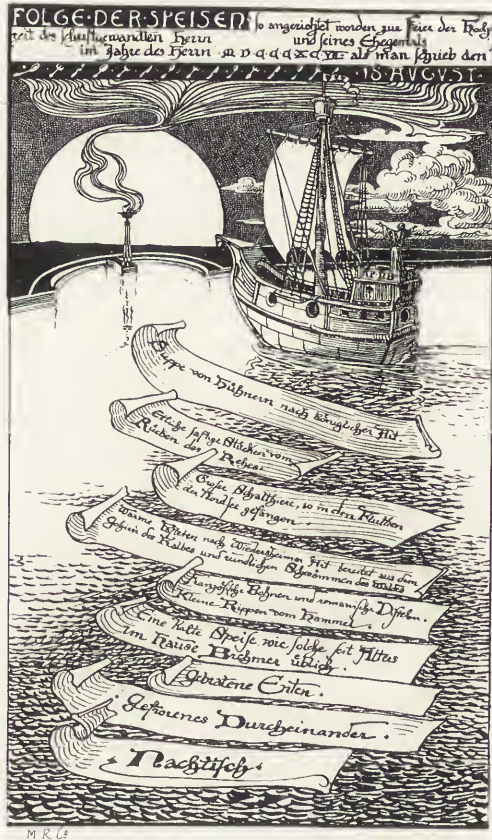 FOLGE·DER·SPEISEN so angerichtet worden zur Feier der Hoch
zeit des Herrn und seines Ehegemals
im Jahre des Herrn als man schrieb den
·18·AUGVST·
Suppe von Hühnern nach königlicher Art
Etliche saftige Stücken vom
Rücken des Rehes.
Große Schaltthiere, so in den Fluthen
der Nordsee gefangen.
Warme Pasteten nach Art bereitet aus dem
Gehirn des Kalbes und rundlichen Schwämmen des Waldes
Französische Bohnen und romanische Disteln.
Kleine Rippen vom Hammel.
Eine kalte Speise, wie solche seit Alters
im Hause Brühmer üblig.
Gebratene Enten.
Gefrorenes Durcheinander.
·Nachtisch·
M R Co